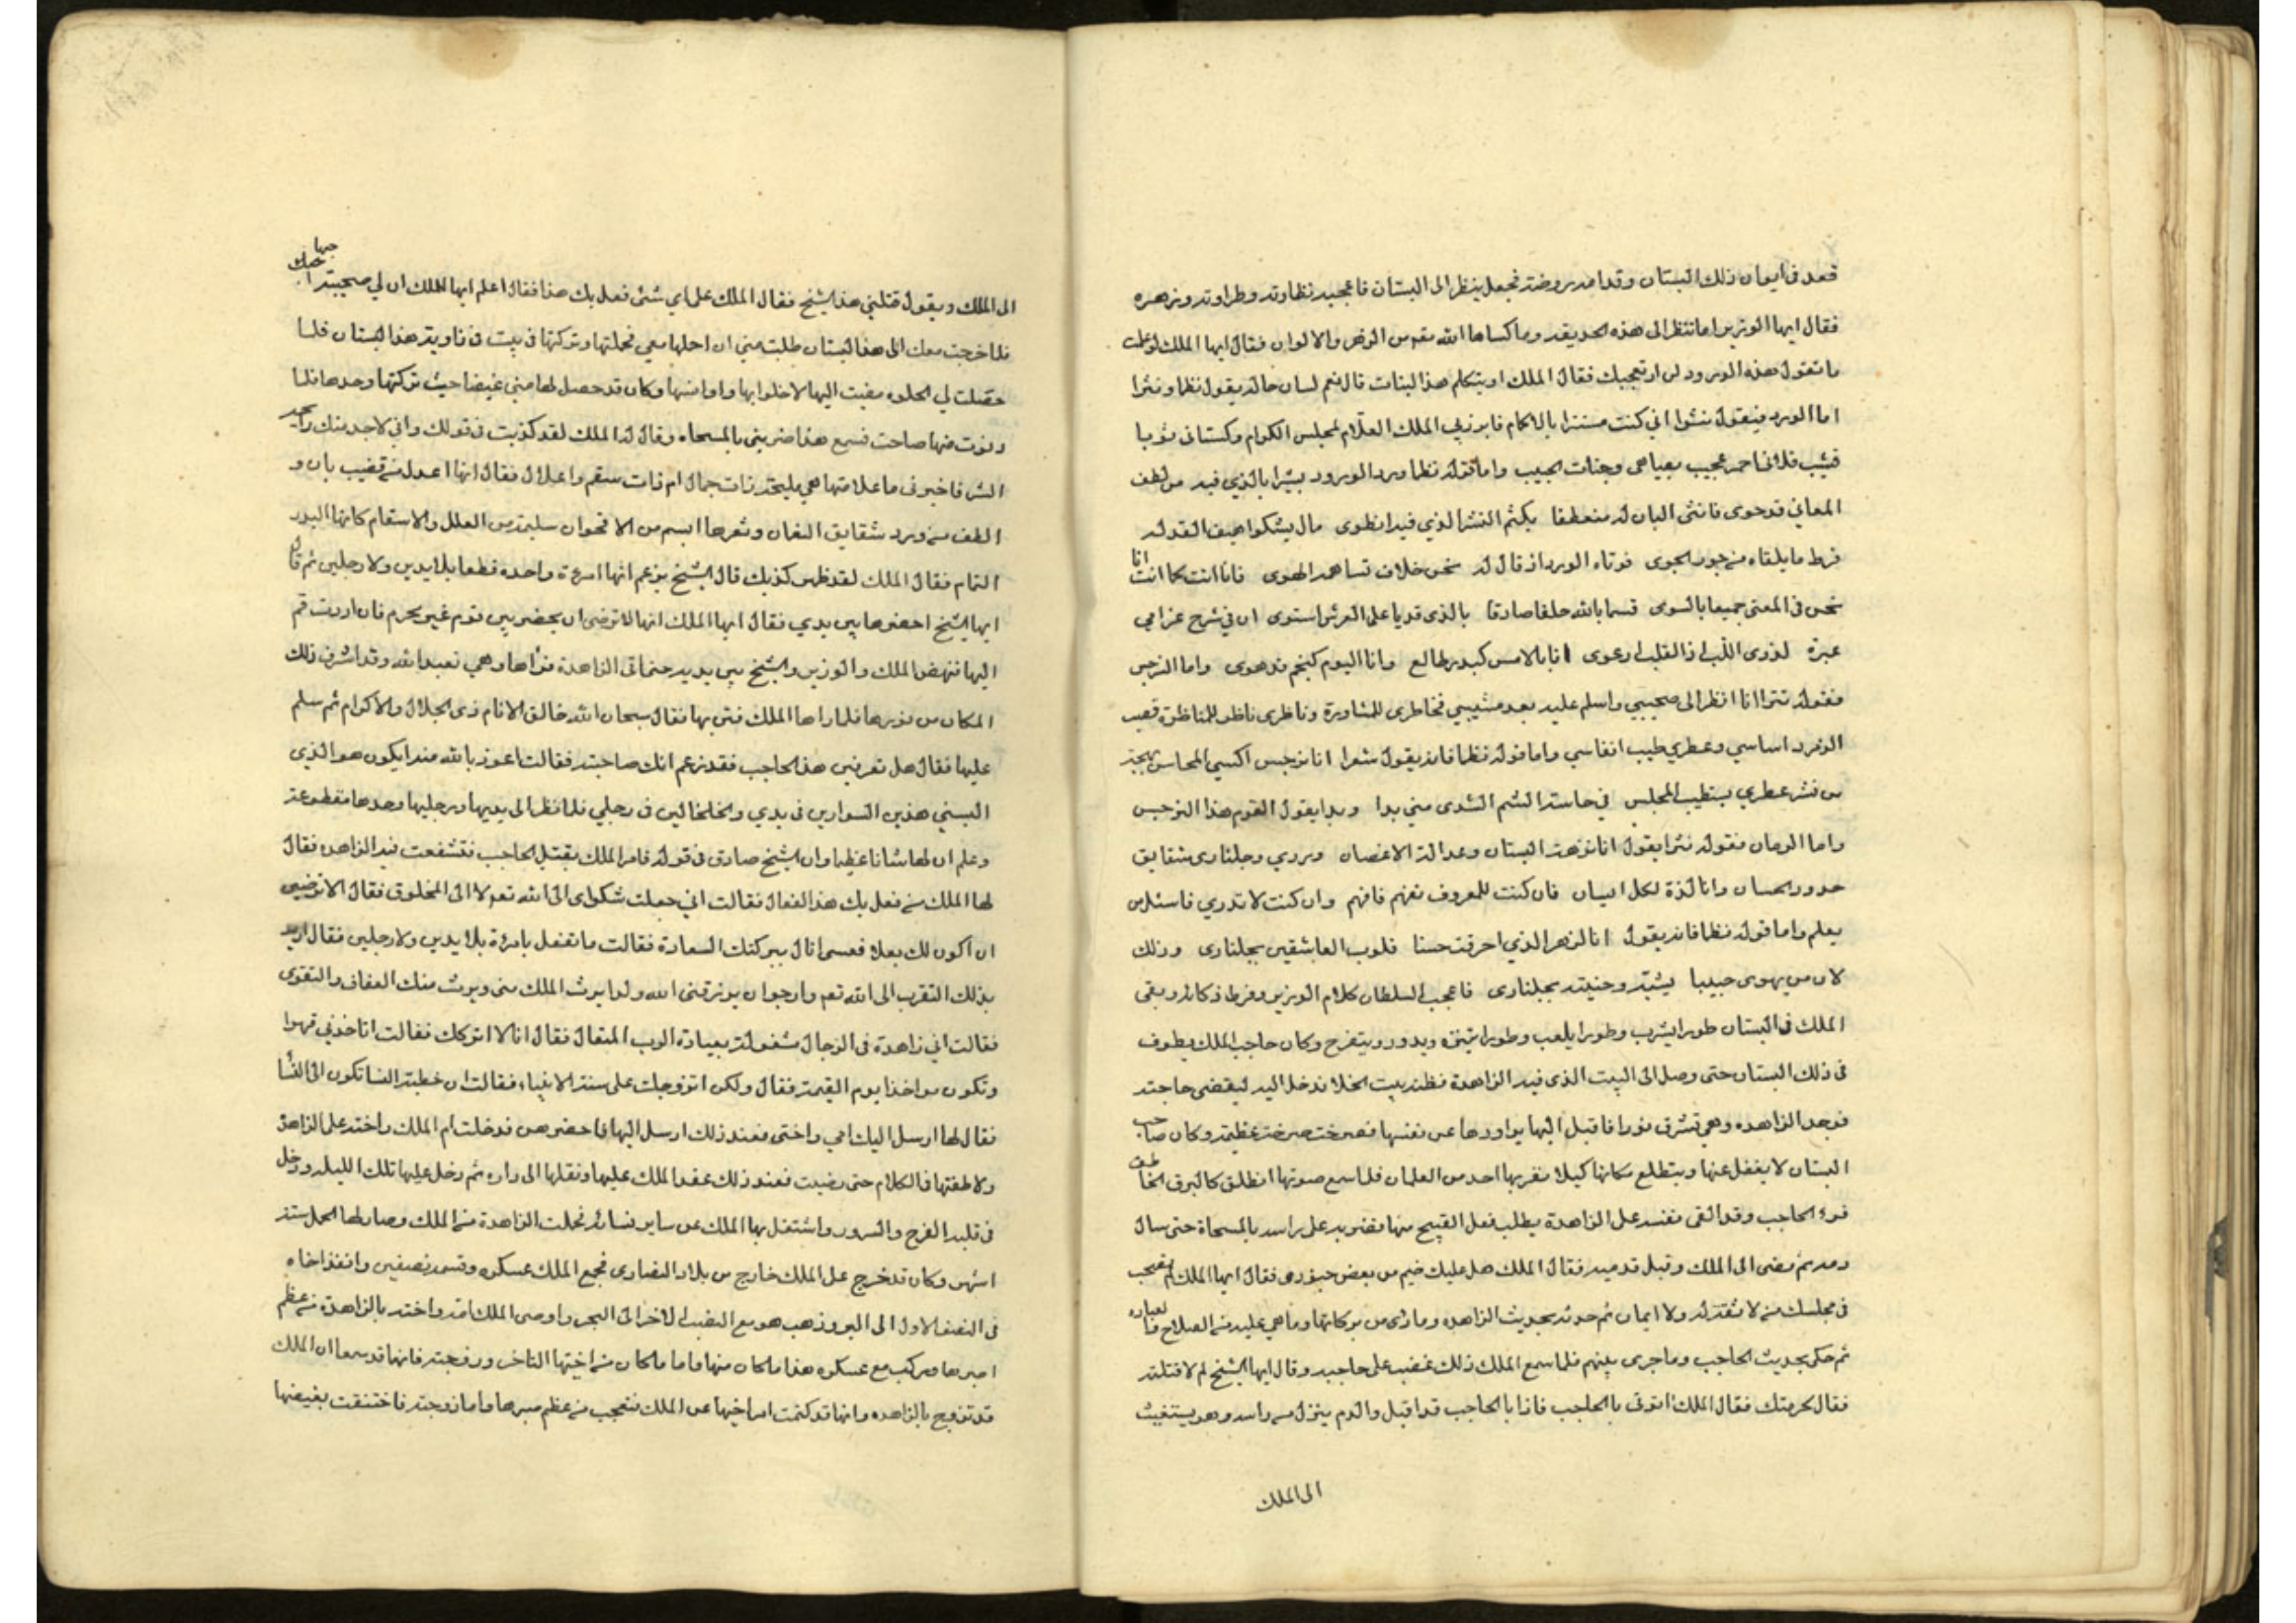 قعد فى ايوان ذلك البستان وقدامه روضة فجعل ينظر الى البستان فاعجبه نظاوته وطراوته وزهره
فقال ايها الوزير اما تنظر الى هذه الحديقه وما كساها الله تعه من الزهر والالوان فقال ايها الملك لو علمت
ما تقول هذه الورود لن ار تعجبك فقال الملك او يتكلم هذا النبات قال نعم لسان حاله يقول نظما ونثرا
اما الورد فيقول نثرا اني كنت مستترا بالاكمام فابرزني الملك العلام لمجلس الكرام وكساني ثوبا
قشيب فلانى احمر عجيب بعياهى وجنات الحبيب واما قوله نظما ورد الورود بشرا بالذي فيه من لطف
المعاني قد حوى فانثنى البان له منعطفا يكثم النشر الذي فيه انطوى مال يشكوا هيف القد له
فرط ما يلقاه من جور الجوى فوتاه الورد اذ قال له نحن خلان تساهمه الهوى فانا انت كما انت انا
نحن فى المعنى جميعا بالسوى قسما بالله حلفا صادقا بالذى قد يا على العرش استوى ان في شرح غرامي
عبرة لذوى اللب اذ القلب ارعوى انا بالامس كبدر طالع وانا اليوم كنجم قد هوى واما النرجس
فقوله نثرا انا انظر الى صحيبي واسلم عليه بعد مشيبي فخاطرى للمشاورة وناظرى ناظر للمناظرة قصب
الزمرد اساسي وعطري طيب انفاسي واما قوله نظما فانه يقول شعرا انا نرجس اكسي المحاسن بهجة
من نشر عطري يستطيب المجلس في حاسة الشم الشذى مني بدا وبدا يقول القوم هذا النرجس
واما الرمان فقوله نثرا يقول انا نزهة البستان وعدالة الاغصان وبردي وجلنارى شقايق
خدود الحسان وانا لذة لكل انسان فان كنت للمعروف تفهم فافهم وان كنت لا تدري فاسئل من
يعلم واما قوله نظما فانه يقول انا الزهر الذي احرقت حسنا قلوب العاشقين بجلنارى وذلك
لان من يهوى حبيبا يشبه وجنيته بجلنارى فاعجب السلطان كلام الوزير وفرط ذكائه وبقى
الملك فى البستان طورا يشرب وطورا يلعب وطورا يتنزه ويدور ويتفرج وكان حاجب الملك يطوف
فى ذلك البستان حتى وصل الى البيت الذى فيه الزاهدة فظنه بيت الخلا فدخل اليه ليقضى حاجته
فوجد الزاهده وهى تشرق نورا فاقبل اليها يراودها عن نفسها فصرخت صرخة عظيمة وكان صاحب
البستان لا يغفل عنها ويتطلع مكانها كيلا يقربها احد من الغلمان فلما سمع صوتها انطلق كالبرق الخاطف
فرء الحاجب وقد القى نفسه على الزاهدة يطلب فعل القبيح منها فضربه على راسه بالمسحاة حتى سال
دمه ثم مضى الى الملك وقبل قدميه فقال الملك هل عليك ضيم من بعض جنودى فقال ايها الملك لم تصحب
فى مجلسك من لا ثقة له ولا ايمان ثم حدثه بحديث الزاهده وما راى من بركاتها وما هي عليه من الصلاح والعباده
ثم حكى بحديث الحاجب وما جرى بينهم فلما سمع الملك ذلك غضب على حاجبه وقال ايها الشيخ لم لا قتلته
فقال لحرمتك فقال الملك ائتوني بالحاجب فاذا بالحاجب قد اقبل والدم ينزل من راسه وهو يستغيث
الى الملك
الى الملك ويقول قتلني هذا الشيخ فقال الملك على اي شئ فعل بك هذا فقال اعلم ايها الملك ان لي صحيبة احبها
فلما خرجت معك الى هذا البستان طلبت مني ان احلها معي فحملتها وتركتها فى بيت فى زاوية هذا البستان فلما
حصلت لي الخلوه مضيت اليها لاخلوا بها واوانسها وكان قد حصل لها مني غيضا حيث تركتها وحدها فلما
دنوت منها صاحت فسمع هذا ضربني بالمسحاه وقال له الملك لقد كذبت فى قولك واني لاجد منك رايحة
الشر فاخبرنى ما علامتها هي مليحة ذات جمال ام ذات سقم واعلال فقال انها اعدل من قضيب بان و
الطف من ورد شقايق النعمان وثغرها ابسم من الاقحوان سليمة من العلل والاسقام كانها البدر
التمام فقال الملك لقد ظهر كذبك قال الشيخ يزعم انها امرءة واحده قطعا بلا يدين ولا رجلين ثم قال
ايها الشيخ احضرها بين يدي فقال ايها الملك انها لا ترضى ان يحضر بين قوم غير محرم فان اردت قم
اليها فنهض الملك والوزير والشيخ بين يديه حتى اتى الزاهدة فراها وهي تعبد الله وقد اشرق ذلك
المكان من نورها فلما راها الملك فتن بها فقال سبحان الله خالق الانام ذى الجلال والاكرام ثم سلم
عليها فقال هل تعرفين هذا الحاجب فقد زعم انك صاحبته فقالت اعوذ بالله منه ايكون هو الذي
البسني هذين السوارين فى يدي والخلخالين فى رجلي فلما نظر الى يديها ورجليها وجدها مقطوعة
وعلم ان لها شانا عظيما وان الشيخ صادق فى قوله فامر الملك بقتل الحاجب فتشفعت فيه الزاهده فقال
لها الملك من فعل بك هذا الفعال فقالت اني جعلت شكواى الى الله تعه لا الى المخلوق فقال الا ترضين
ان اكون لك بعلا فعسى انال ببركتك السعادة فقالت ما تفعل بامرءة بلا يدين ولا رجلين فقال اريد
بذلك التقرب الى الله تعه وارجوا ان يرزقنى الله ولدا يرث الملك منى ويرث منك العفاف والتقوى
فقالت اني زاهدة فى الرجال مشغولة بعبادة الرب المتعال فقال انا لا اتركك فقالت اتاخذني قهرا
وتكون مواخذا يوم القيمة فقال ولكن اتزوجك على سنة الانبياء فقالت ان خطبة النسا تكون الى النسا
فقال لها ارسل اليك امي واختى فعند ذلك ارسل اليها فاحضرهن فدخلت ام الملك واخته على الزاهدة
ولاطفتها فالكلام حتى رضيت فعند ذلك عقد الملك عليها ونقلها الى داره ثم دخل عليها تلك الليله ودخل
فى قلبه الفرح والسرور واشتغل بها الملك عن ساير نسائه فحملت الزاهدة من الملك وصار لها الحمل ستة
اشهر وكان قد خرج على الملك خارج من بلاد النصارى فجمع الملك عسكره وقسمه نصفين وانفذ اخاه
فى النصف الاول الى البر وذهب هو مع النصف الاخر الى البحر واوصى الملك امه واخته بالزاهدة من عظم
امرها وركب مع عسكره هذا ما كان منها واما ما كان من اخيها التاجر وزوجته فانها قد سمعا ان الملك
قد تزوج بالزاهده وانها قد كتمت امر اخيها عن الملك فتعجب من عظم صبرها واما زوجته فاختنقت بغيضها